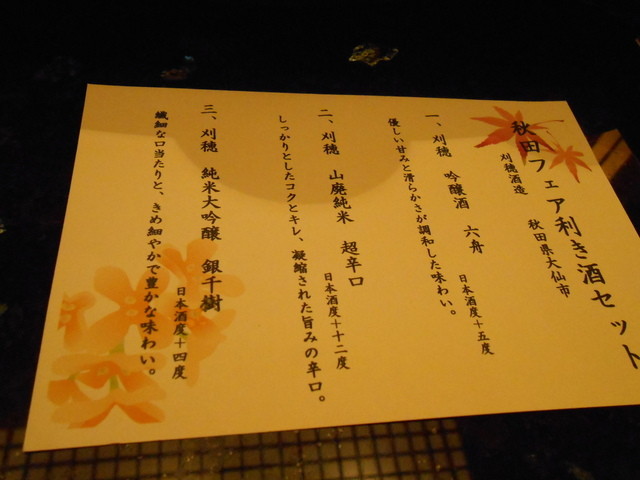 秋田フェア利き酒セット
刈穂酒造　秋田県大仙市
一、刈穂　吟醸酒　六舟　日本酒度＋五度
優しい甘みと滑らかさが調和した味わい。
二、刈穂　山廃純米　超辛口　日本酒度＋十二度
しっかりとしたコクとキレ、凝縮された旨みの辛口。
三、刈穂　純米大吟醸　銀千樹　日本酒度＋四度
繊細な口当たりと、きめ細やかで豊かな味わい。